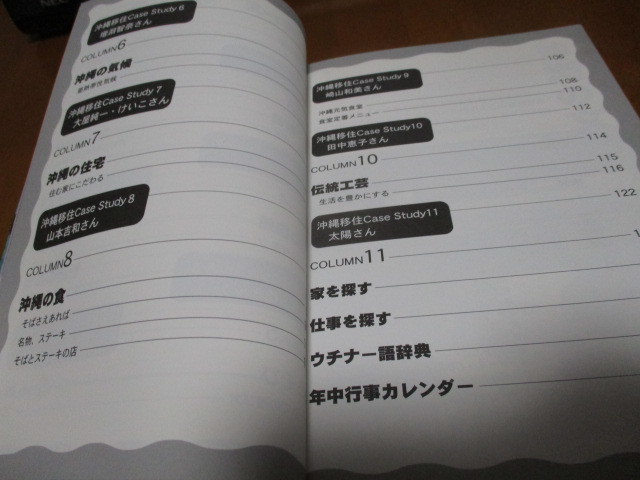 沖縄移住Case Study 6
智奈さん
COLUMN6
沖縄の気候
亜熱帯性気候
沖縄移住Case Study 7
大屋純一・けいこさん
COLUMN7
沖縄の住宅
住む家にこだわる
沖縄移住Case Study 8
山本吉和さん
COLUMN8
沖縄の食
そばさえあれば
名物、ステーキ
そばとステーキの店
106
沖縄移住Case Study 9
崎山和美さん
108
沖縄元気食堂 110
食堂定番メニュー 112
沖縄移住Case Study10
田中恵子さん
COLUMN10 114
伝統工芸 115
生活を豊かにする 116
沖縄移住Case Study11
太陽さん
122
COLUMN11
家を探す
仕事を探す
ウチナー語辞典
年中行事カレンダー